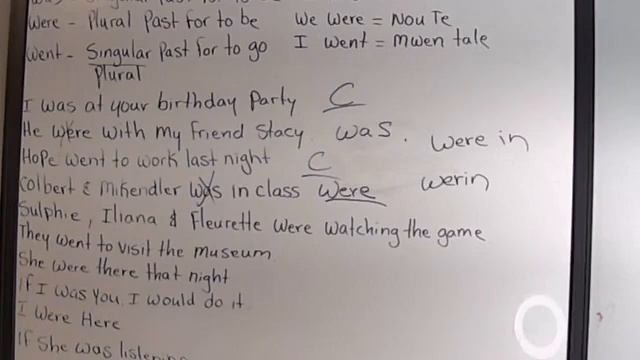 Were - Plural Past for to be We Were = Nou Te
Went - Singular Past for to go I Went = Mwen tale
Plural
I was at your birthday Party C
He were with my friend Stacy was. were in
Hope went to work last night C
Colbert & Mikendler was in class were werin
Sulphie, Iliana & Fleurette were watching the game
They went to visit the museum
She were there that night
If I was you, I would do it
I Were Here
If She was listening